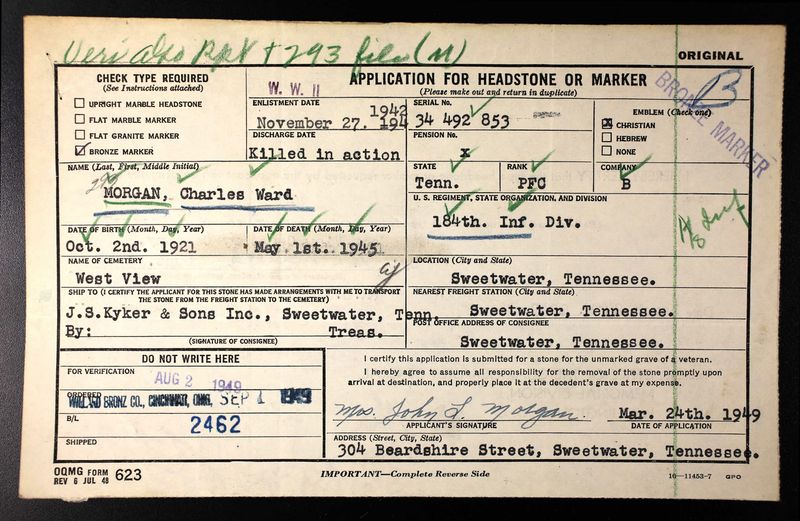 Veri also Rpt + 293 file (M)
ORIGINAL
CHECK TYPE REQUIRED
(See Instructions attached)
UPRIGHT MARBLE HEADSTONE
FLAT MARBLE MARKER
FLAT GRANITE MARKER
BRONZE MARKER
W. W. II
APPLICATION FOR HEADSTONE OR MARKER
(Please make out and return in duplicate)
B
BRONZE MARKER
ENLISTMENT DATE
1942
November 27. 194
SERIAL No.
34 492 853
EMBLEM (Check one)
CHRISTIAN
HEBREW
NONE
DISCHARGE DATE
Killed in action
PENSION No.
x
NAME (Last, First, Middle Initial)
293
MORGAN, Charles Ward
STATE
Tenn.
RANK
PFC
COMPANY
B
U. S. REGIMENT, STATE ORGANIZATION, AND DIVISION
184th. Inf. Div.
DATE OF BIRTH (Month, Day, Year)
Oct. 2nd. 1921
DATE OF DEATH (Month, Day, Year)
May 1st. 1945
NAME OF CEMETERY
West View
LOCATION (City and State)
Sweetwater, Tennessee.
SHIP TO (I CERTIFY THE APPLICANT FOR THIS STONE HAS MADE ARRANGEMENTS WITH ME TO TRANSPORT
THE STONE FROM THE FREIGHT STATION TO THE CEMETERY)
J.S.Kyker & Sons Inc., Sweetwater, Tenn.
By: Treas.
(SIGNATURE OF CONSIGNEE)
NEAREST FREIGHT STATION (City and State)
Sweetwater, Tennessee.
POST OFFICE ADDRESS OF CONSIGNEE
Sweetwater, Tennessee.
DO NOT WRITE HERE
FOR VERIFICATION
AUG 2 1949
ORDERED
BRONZ CO., CINCINNATI, OHIO. SEP 1 1949
B/L
2462
SHIPPED
I certify this application is submitted for a stone for the unmarked grave of a veteran.
I hereby agree to assume all responsibility for the removal of the stone promptly upon
arrival at destination, and properly place it at the decedent's grave at my expense.
Mrs. John L. Morgan. Mar. 24th. 1949
APPLICANT'S SIGNATURE DATE OF APPLICATION
ADDRESS (Street, City, State)
304 Beardshire Street, Sweetwater, Tennessee.
OQMG FORM
REV 6 JUL 48
623
IMPORTANT—Complete Reverse Side
16—11453-7 GPO